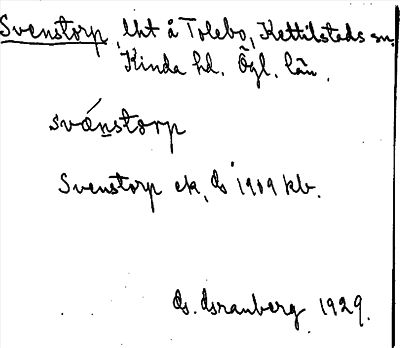 Svenstorp, lht å Tolebo, Kettilstads sn.
Kinda hd. Ögl. län.
svǽnstorp
Svenstorp ek, ds 1909 kb.
1929.